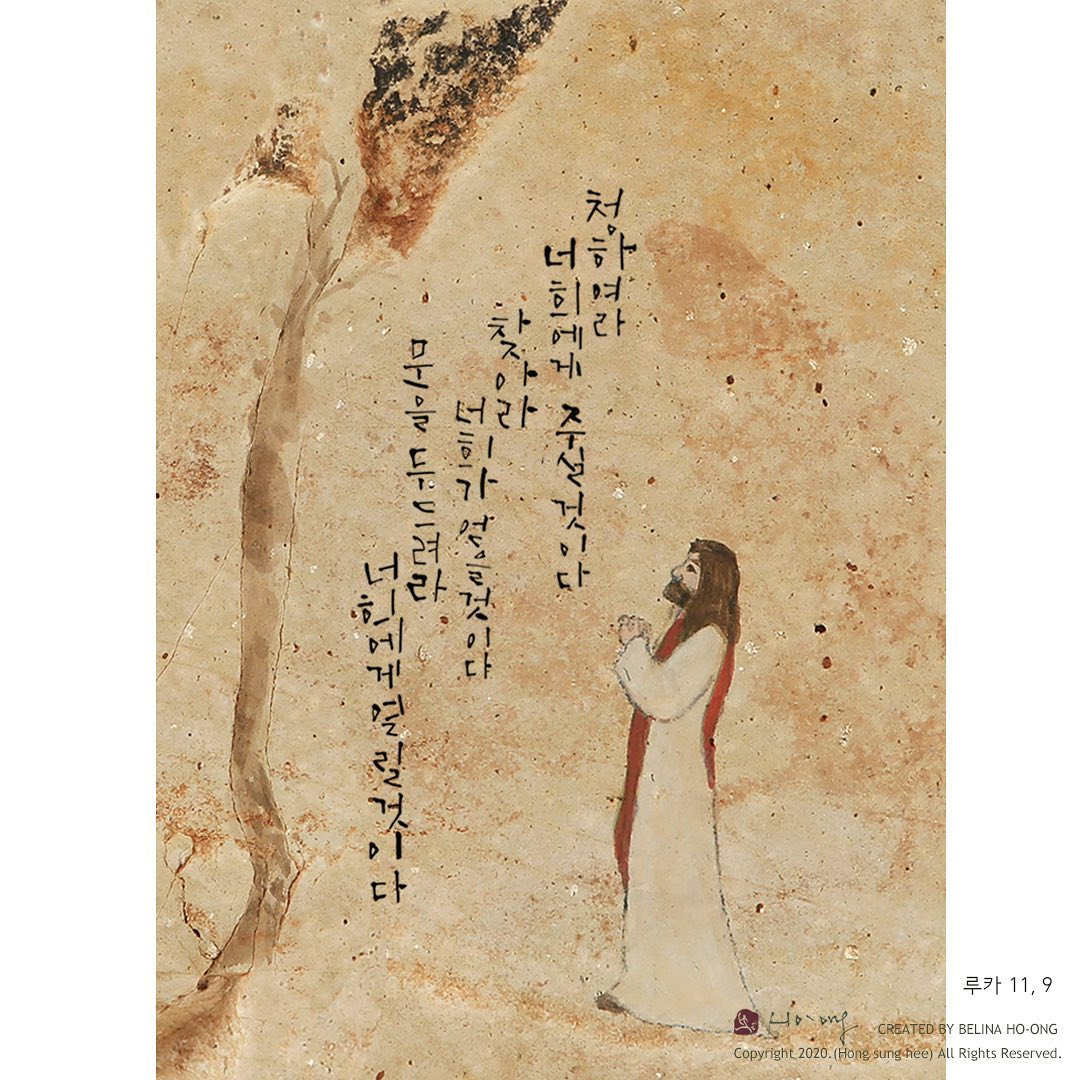 청하여라
너희에게 주실것이다
찾아라
너희가 얻을것이다
문을 두드려라
너희에게 열릴것이다
루카 11, 9
CREATED BY BELINA HO-ONG
Copyright 2020.(Hong sung hee) All Rights Reserved.